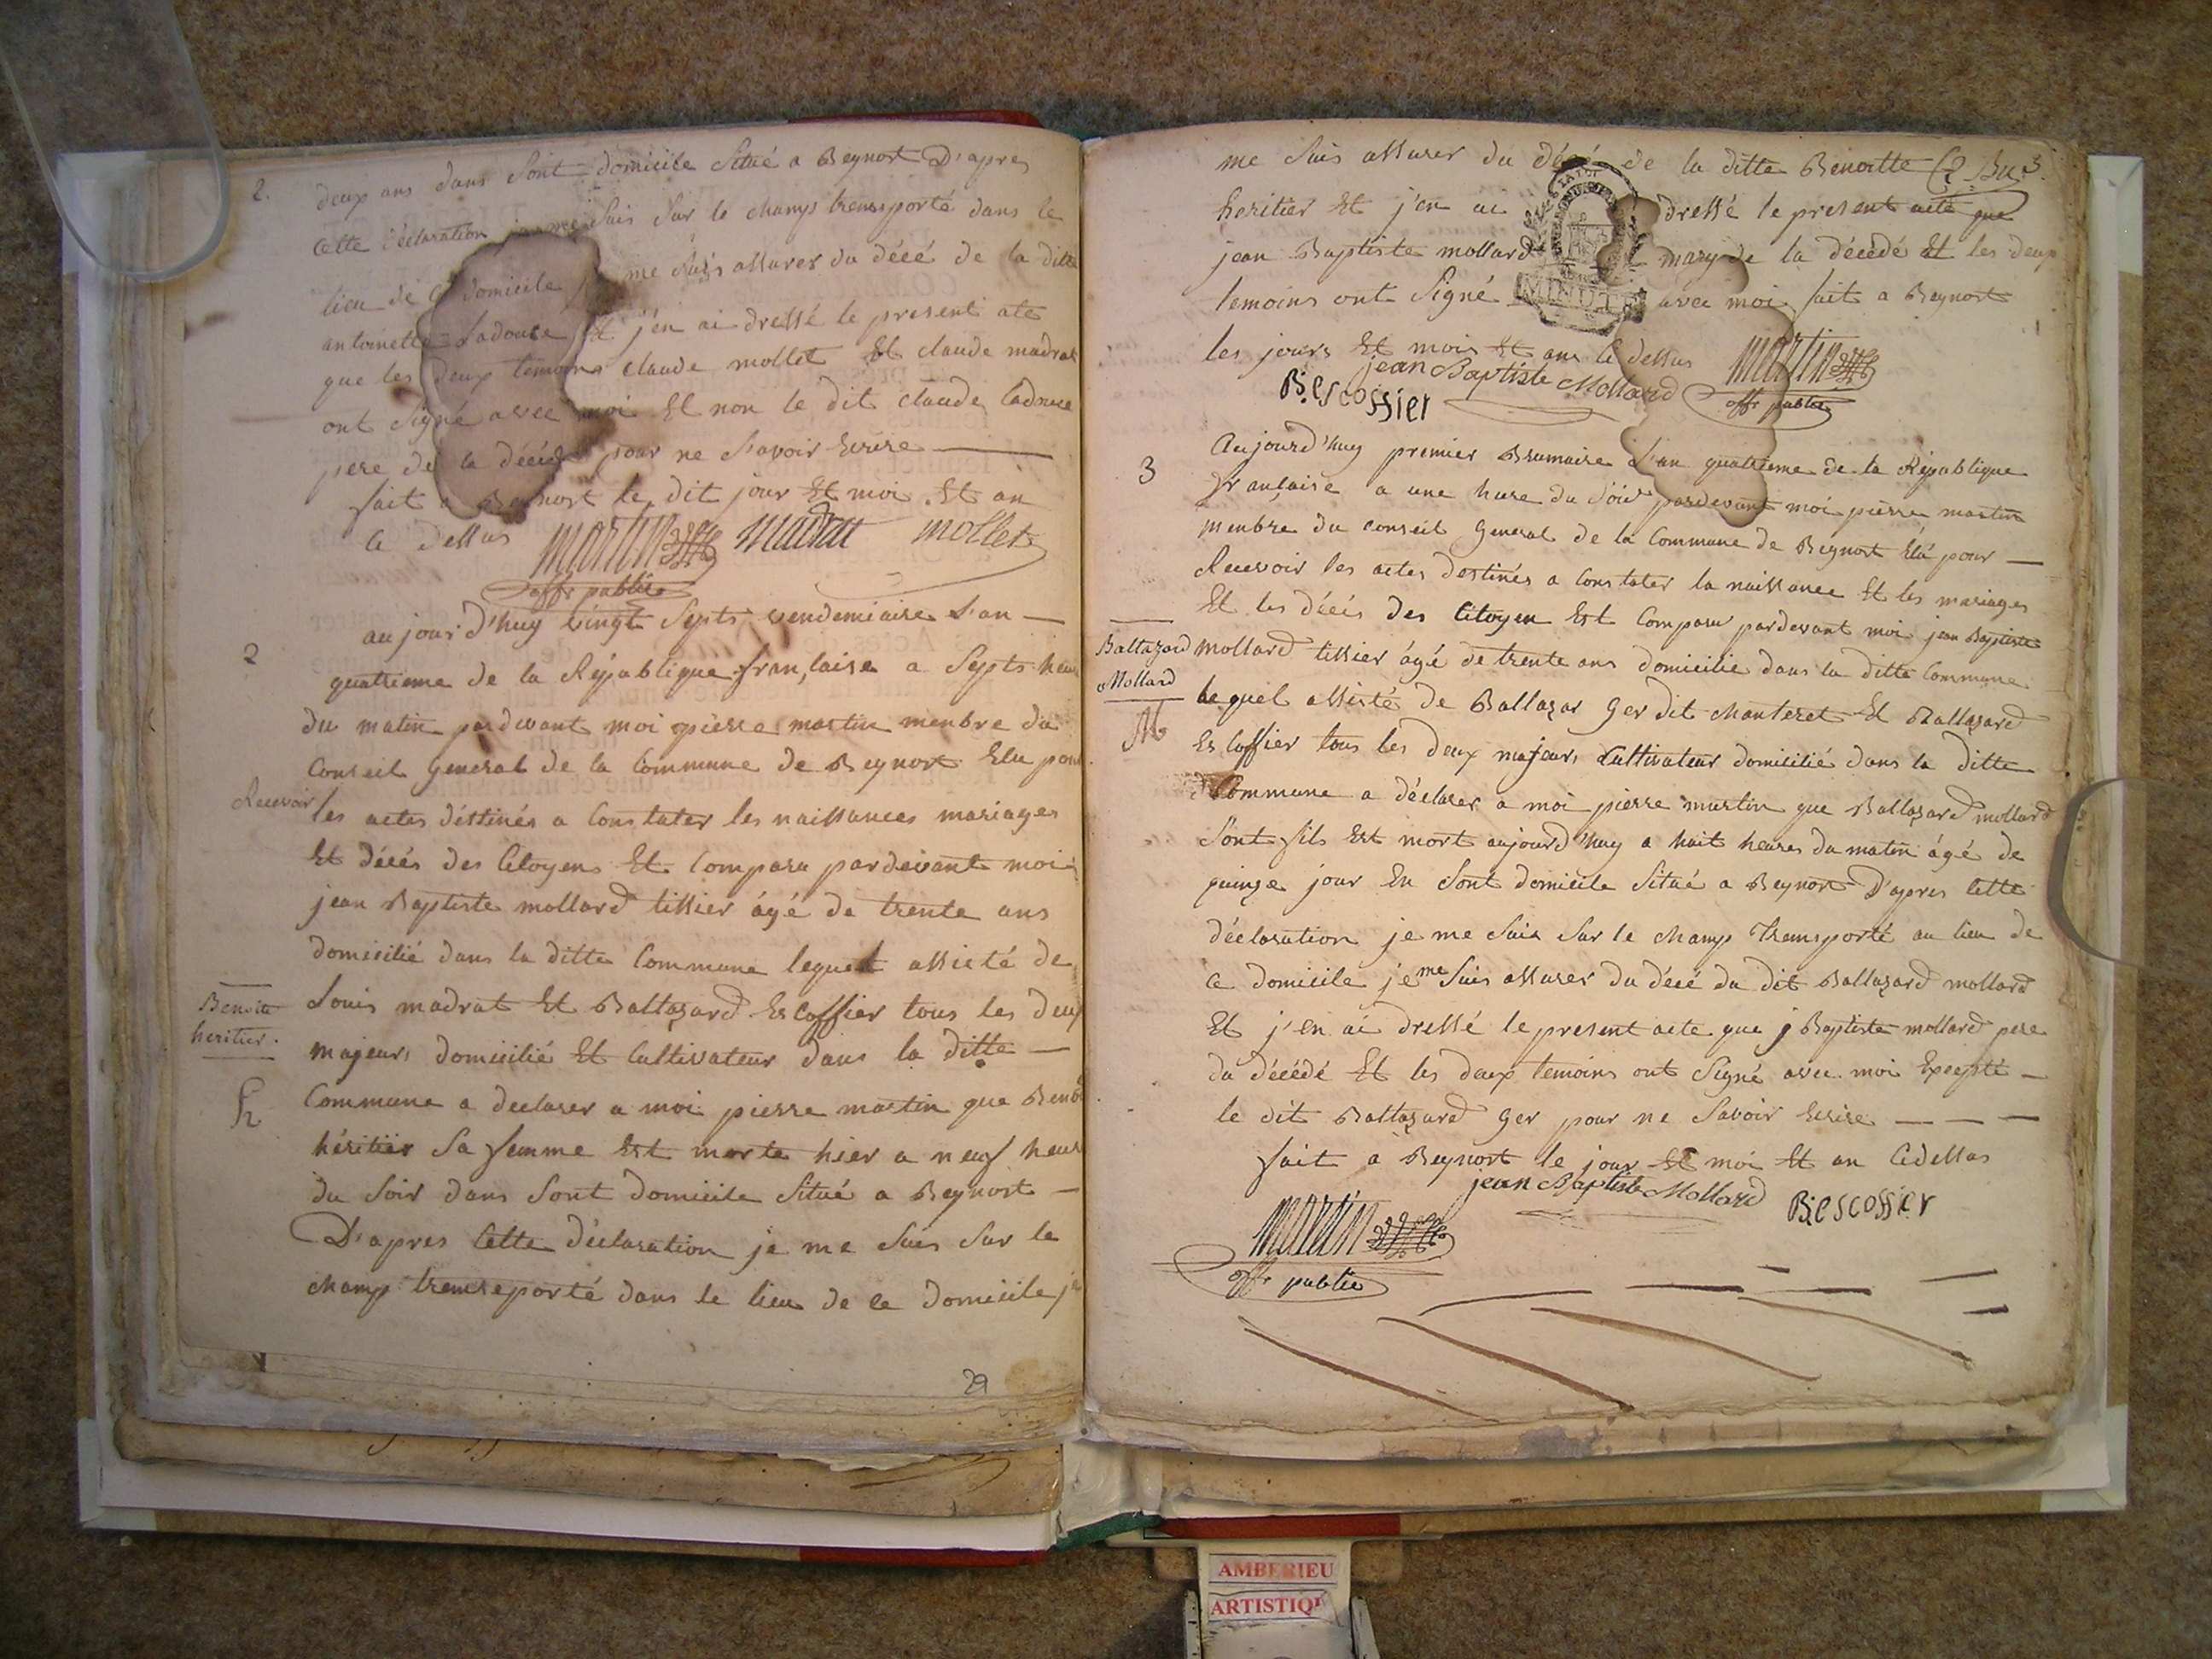 2.
deux ans dans Sont domicile Situé a Beynost D'apres
cette déclaration je me Suis Sur le champs transporté dans le
lieu de ce domicile je me Suis assurer du décé de la ditte
antoinette Ladouce Et j'en ai dressé le present ate
que les deux temoins claude mollet Et claude madrat
ont Signé avec moi Et non le dit claude Ladouce
pere de la décédé pour ne Savoir Ecrire —
fait a Beynost le dit jour Et moi Et an
ce dessus martin madrat mollet
offr public
2
aujourd'huy vingt Septs vendemiaire L'an —
quatrieme de la République française a Septs heur
du matin pardevant moi pierre martin menbre du
Conseil general de la Commune de Beynost Elu pour
Recevoir les actes déstinés a Constater les naissances mariages
Et décés des Citoyens Et Comparu pardevant moi
jean Baptiste mollard tissier âgé de trente ans
domicilié dans la ditte Commune lequel assisté de
Benoite
heritier.
Louis madrat Et Baltazard Escoffier tous les deux
majeurs domicilié Et Cultivateur dans la ditte —
h
Commune a declarer a moi pierre martin que Benoi
héritier Sa femme Est morte hier a neuf heur
du Soir dans Sont domicile Situé a Beynost —
D'apres Cette déclaration je me Suis Sur le
champ transporté dans le lieu de ce domicile je
29
me Suis assurer du décé de la ditte Benoitte
heritier Et j'en ai dressé le present acte que
jean Baptiste mollard mary de la décédé Et les deux
temoins ont Signé avec moi fait a Beynost
MINUTE
les jours Et mois Et ans Ce dessus martin
jean Baptiste Mollard
B.escoffier
offr public
3
Aujourd'huy premier Brumaire L'an quatrieme de la République
française a une hure du Soir pardevant moi pierre martin
menbre du conseil general de la Commune de Beynost Elu pour —
Recevoir les actes destinés a Constater la naissance Et les mariages
Et les décés des Citoyen Est Comparu pardevant moi jean Baptiste
Baltazard
Mollard
M
mollard tissier âgé de trente ans domicilie dans la ditte Commune
lequel assisté de Baltazar Ger dit chanteret Et Baltazard
Escoffier tous les deux majeurs Cultivateur domicilié dans la ditte
Commune a déclarer a moi pierre martin que Baltazard mollard
Sont fils Est mort aujourd'huy a huit heures du matin âgé de
quinze jour En Sont domicile Situé a Beynost D'apres Cette
déclaration je me Suis Sur le champ Transporté au lieu de
ce domicile je me Suis assurer du décé du dit Baltazard mollard
Et j'En ai dressé le present acte que j Baptiste mollard pere
du décédé Et les deux temoins ont Signé avec moi Excepté —
le dit Baltazard Ger pour ne Savoir Ecrire — — —
fait a Beynost le jour Et moi Et an Cidessus
jean Baptiste Mollard B.escoffier
martin
offr public
AMBERIEU
ARTISTIQU